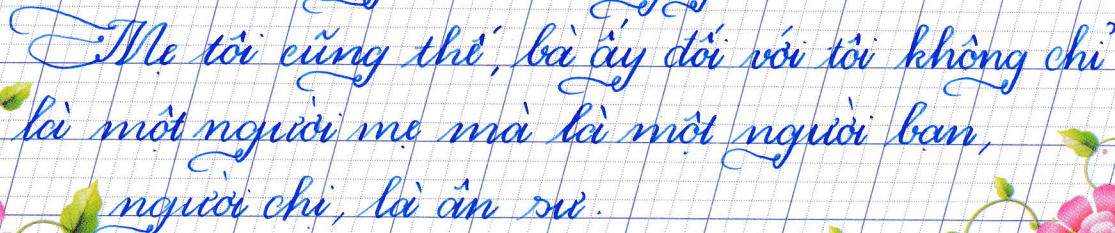 Mẹ tôi cũng thế, bà ấy đối với tôi không chỉ
là một người mẹ mà là một người bạn,
người chị, là ân sư.